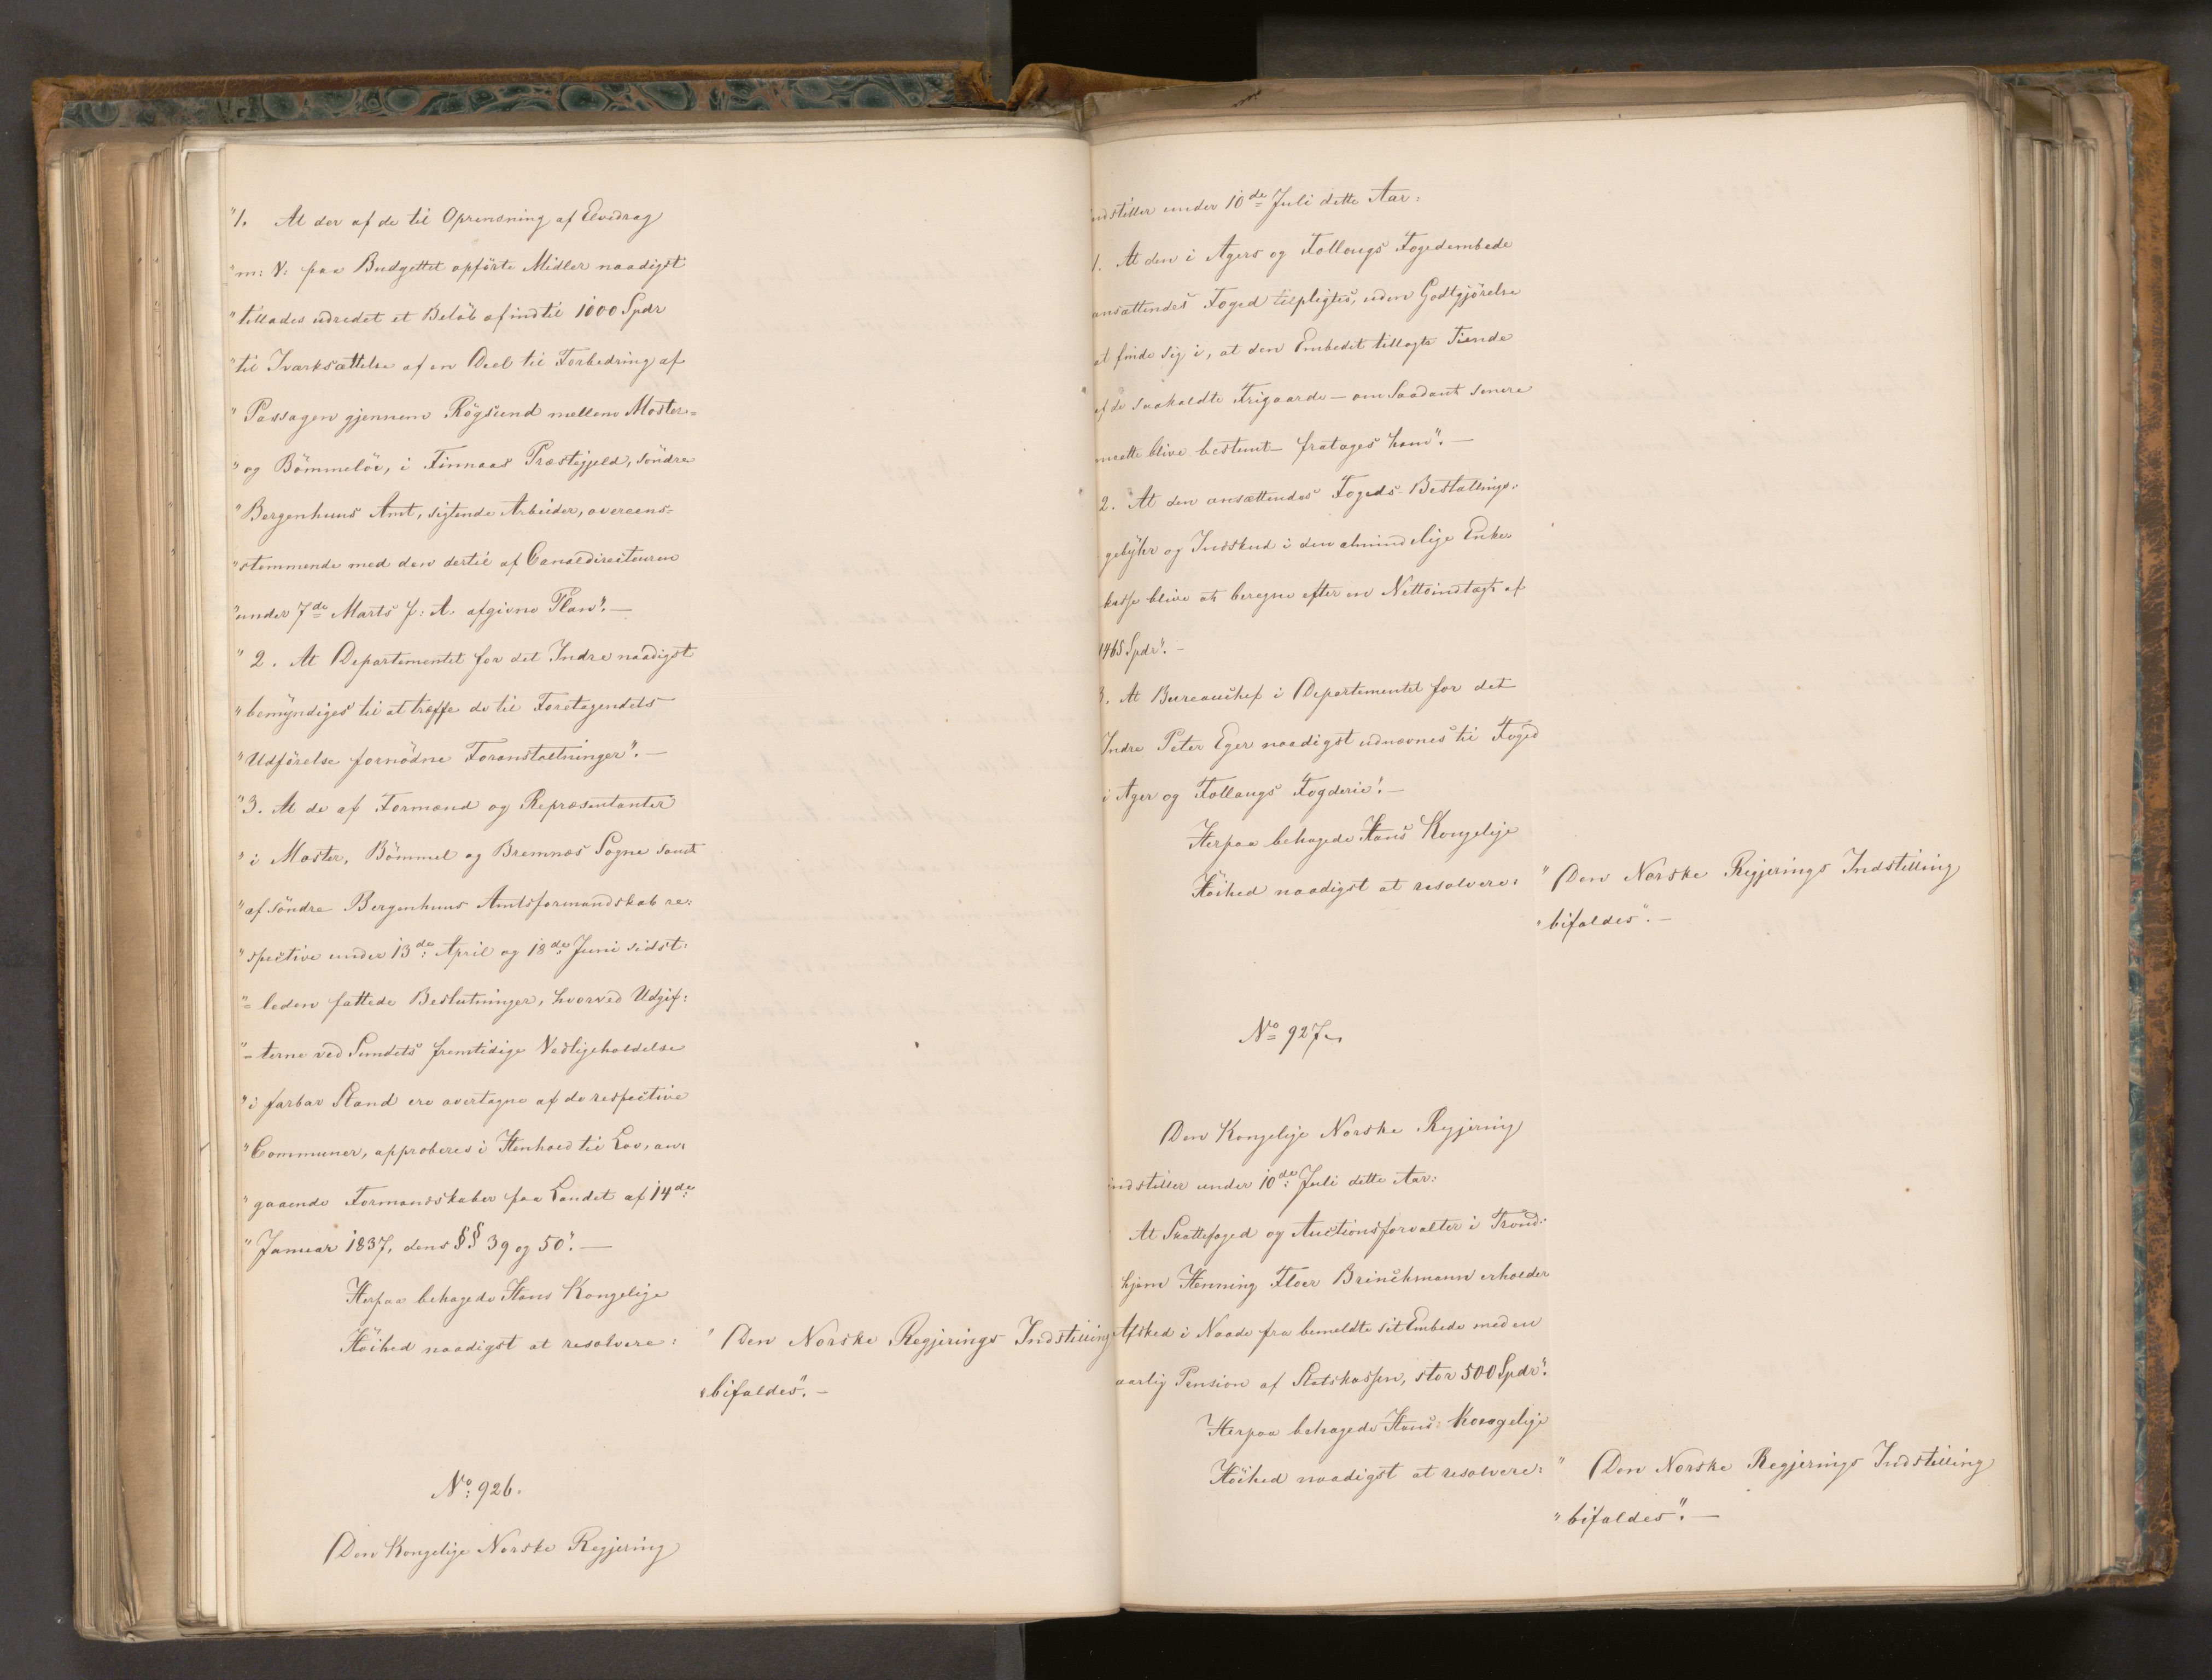 "1. At der af de til Oprensning af Elvedrag
"m: V: paa Budgettet opførte Midler naadigst
"tillades udredet et Beløb af indtil 1000 Spdr
"til Iværksættelse af en Deel til Forbedring af
"Passagen gjennem Røgsund mellem Moster=
"og Bømmeløe, i Finnaas Præstegjeld, Søndre
"Bergenhuus Amt, sigtende Arbeider, overeens=
"stemmende med den dertil af Canaldirecteuren
"under 7de Marts f: A. afgivne Plan". —
"2. At Departementet for det Indre naadigst
"bemyndiges til at træffe de til Foretagendets
"Udførelse fornødne Foranstaltninger". —
"3. At de af Formænd og Repræsentanter
"i Moster, Bømmel og Bremnæs Sogne samt
"af Søndre Bergenhuus Amtsformandskab re:
"spective under 13de April og 18de Juni sidst:
"= leden fattede Beslutninger, hvorved Udgif:
"= terne ved Sundets fremtidige Vedligeholdelse
"i farbar Stand ere overtagne af de respective
"Communer, approberes i Henhold til Lov, an:
"gaaende Formandskaber paa Landet af 14de
"Januar 1837, dens §§ 39 og 50". —
Herpaa behagede Hans Kongelige
Høihed naadigst at resolvere:
"Den Norske Regjerings Indstilling
"bifaldes". —
No: 926.
Den Kongelige Norske Regjering
indstiller under 10de Juli dette Aar:
1. At den i Agers og Follougs Fogedembede
ansættendes Foged tilpligtes, uden Godtgjørelse
at finde sig i, at den Embedet tillagte Tiende
af de saakaldte Frigaarde – om Saadant senere
maatte blive bestemt – fratages ham". —
2. At den ansættendes Fogeds Bestallings:
gebyhr og Indskud i den almindelige Enke
kasse blive at beregne efter en Nettoindtægt af
1465 Spdr". –
3. At Bureauchef i Departementet for det
Indre Peter Eger naadigst udnævnes til Foged
i Ager og Follougs Fogderie". —
Herpaa behagede Hans Kongelige
Høihed naadigst at resolvere:
"Den Norske Regjerings Indstilling
"bifaldes". —
No 927.
Den Kongelige Norske Regjering
indstiller under 10de Juli dette Aar:
At Skattefoged og Auctionsforvalter i Trond:
hjem Henning Floer Brinchmann erholder
Afsked i Naade fra bemeldte sit Embede med en
aarlig Pension af Statskassen, stor 500 Spdr".
Herpaa behagede Hans Kongelige
Høihed naadigst at resolvere:
"Den Norske Regjerings Indstilling
"bifaldes". —